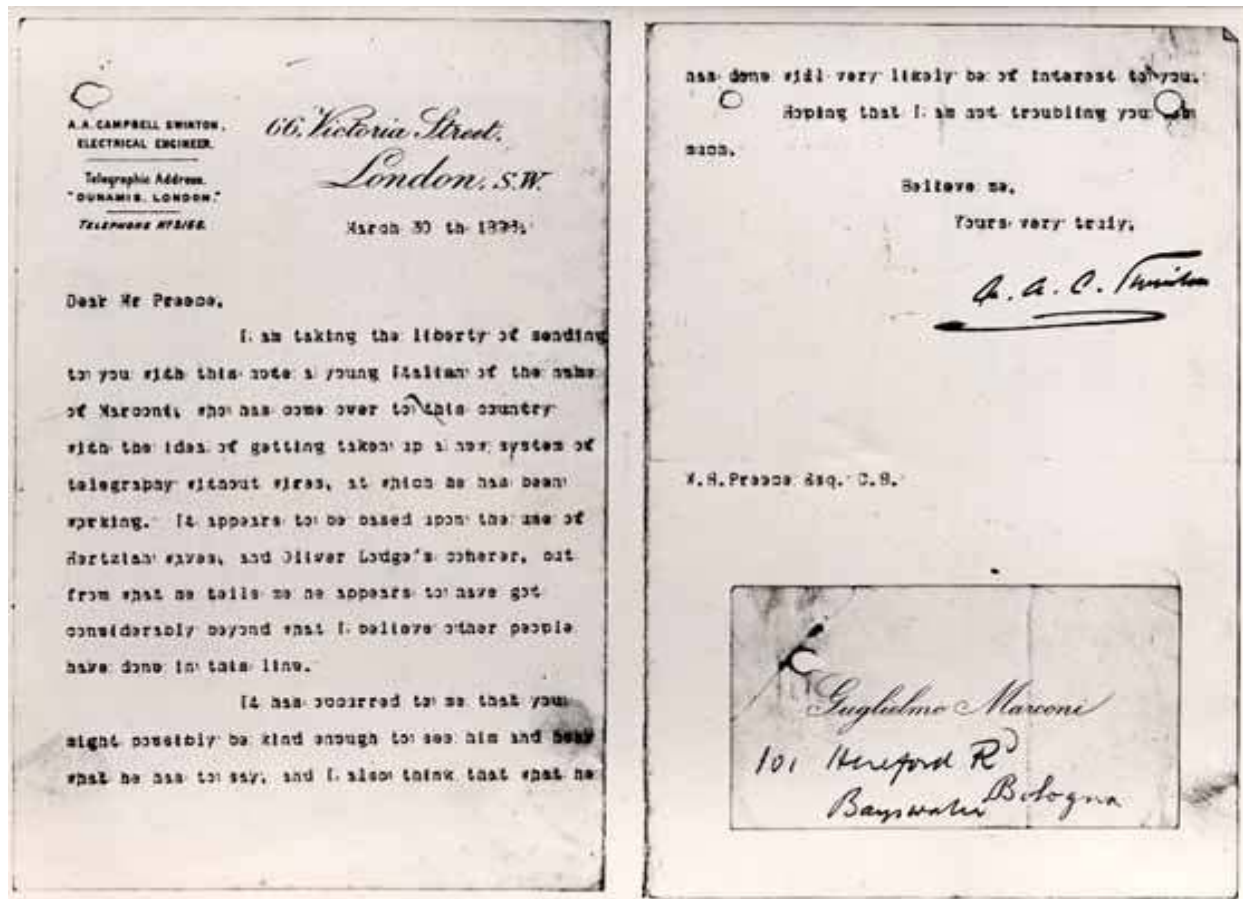 A.A. CAMPBELL SWINTON,
ELECTRICAL ENGINEER.
Telegraphic Address.
"DUNAMIS, LONDON."
TELEPHONE Nº 3168.
66, Victoria Street,
London, S.W.
March 30 th
Dear Mr Preece,
I am taking the liberty of sending
to you with this note a young Italian of the name
of Marconi, who has come over to this country
with the idea of getting taken up a new system of
telegraphy without wires, at which he has been
working. It appears to be based upon the use of
Hertzian waves, and Oliver Lodge's coherer, but
from what he tells me he appears to have got
considerably beyond what I believe other people
have done in this line.
It has occurred to me that you
might possibly be kind enough to see him and hear
what he has to say, and I also think that what he
has done will very likely be of interest to you.
Hoping that I am not troubling you too
much.
Believe me,
Yours very truly,
A. A. C. Swinton
W.H.Preece Esq. C.B.
Guglielmo Marconi
101 Hereford Rd
Bayswater
Bologna